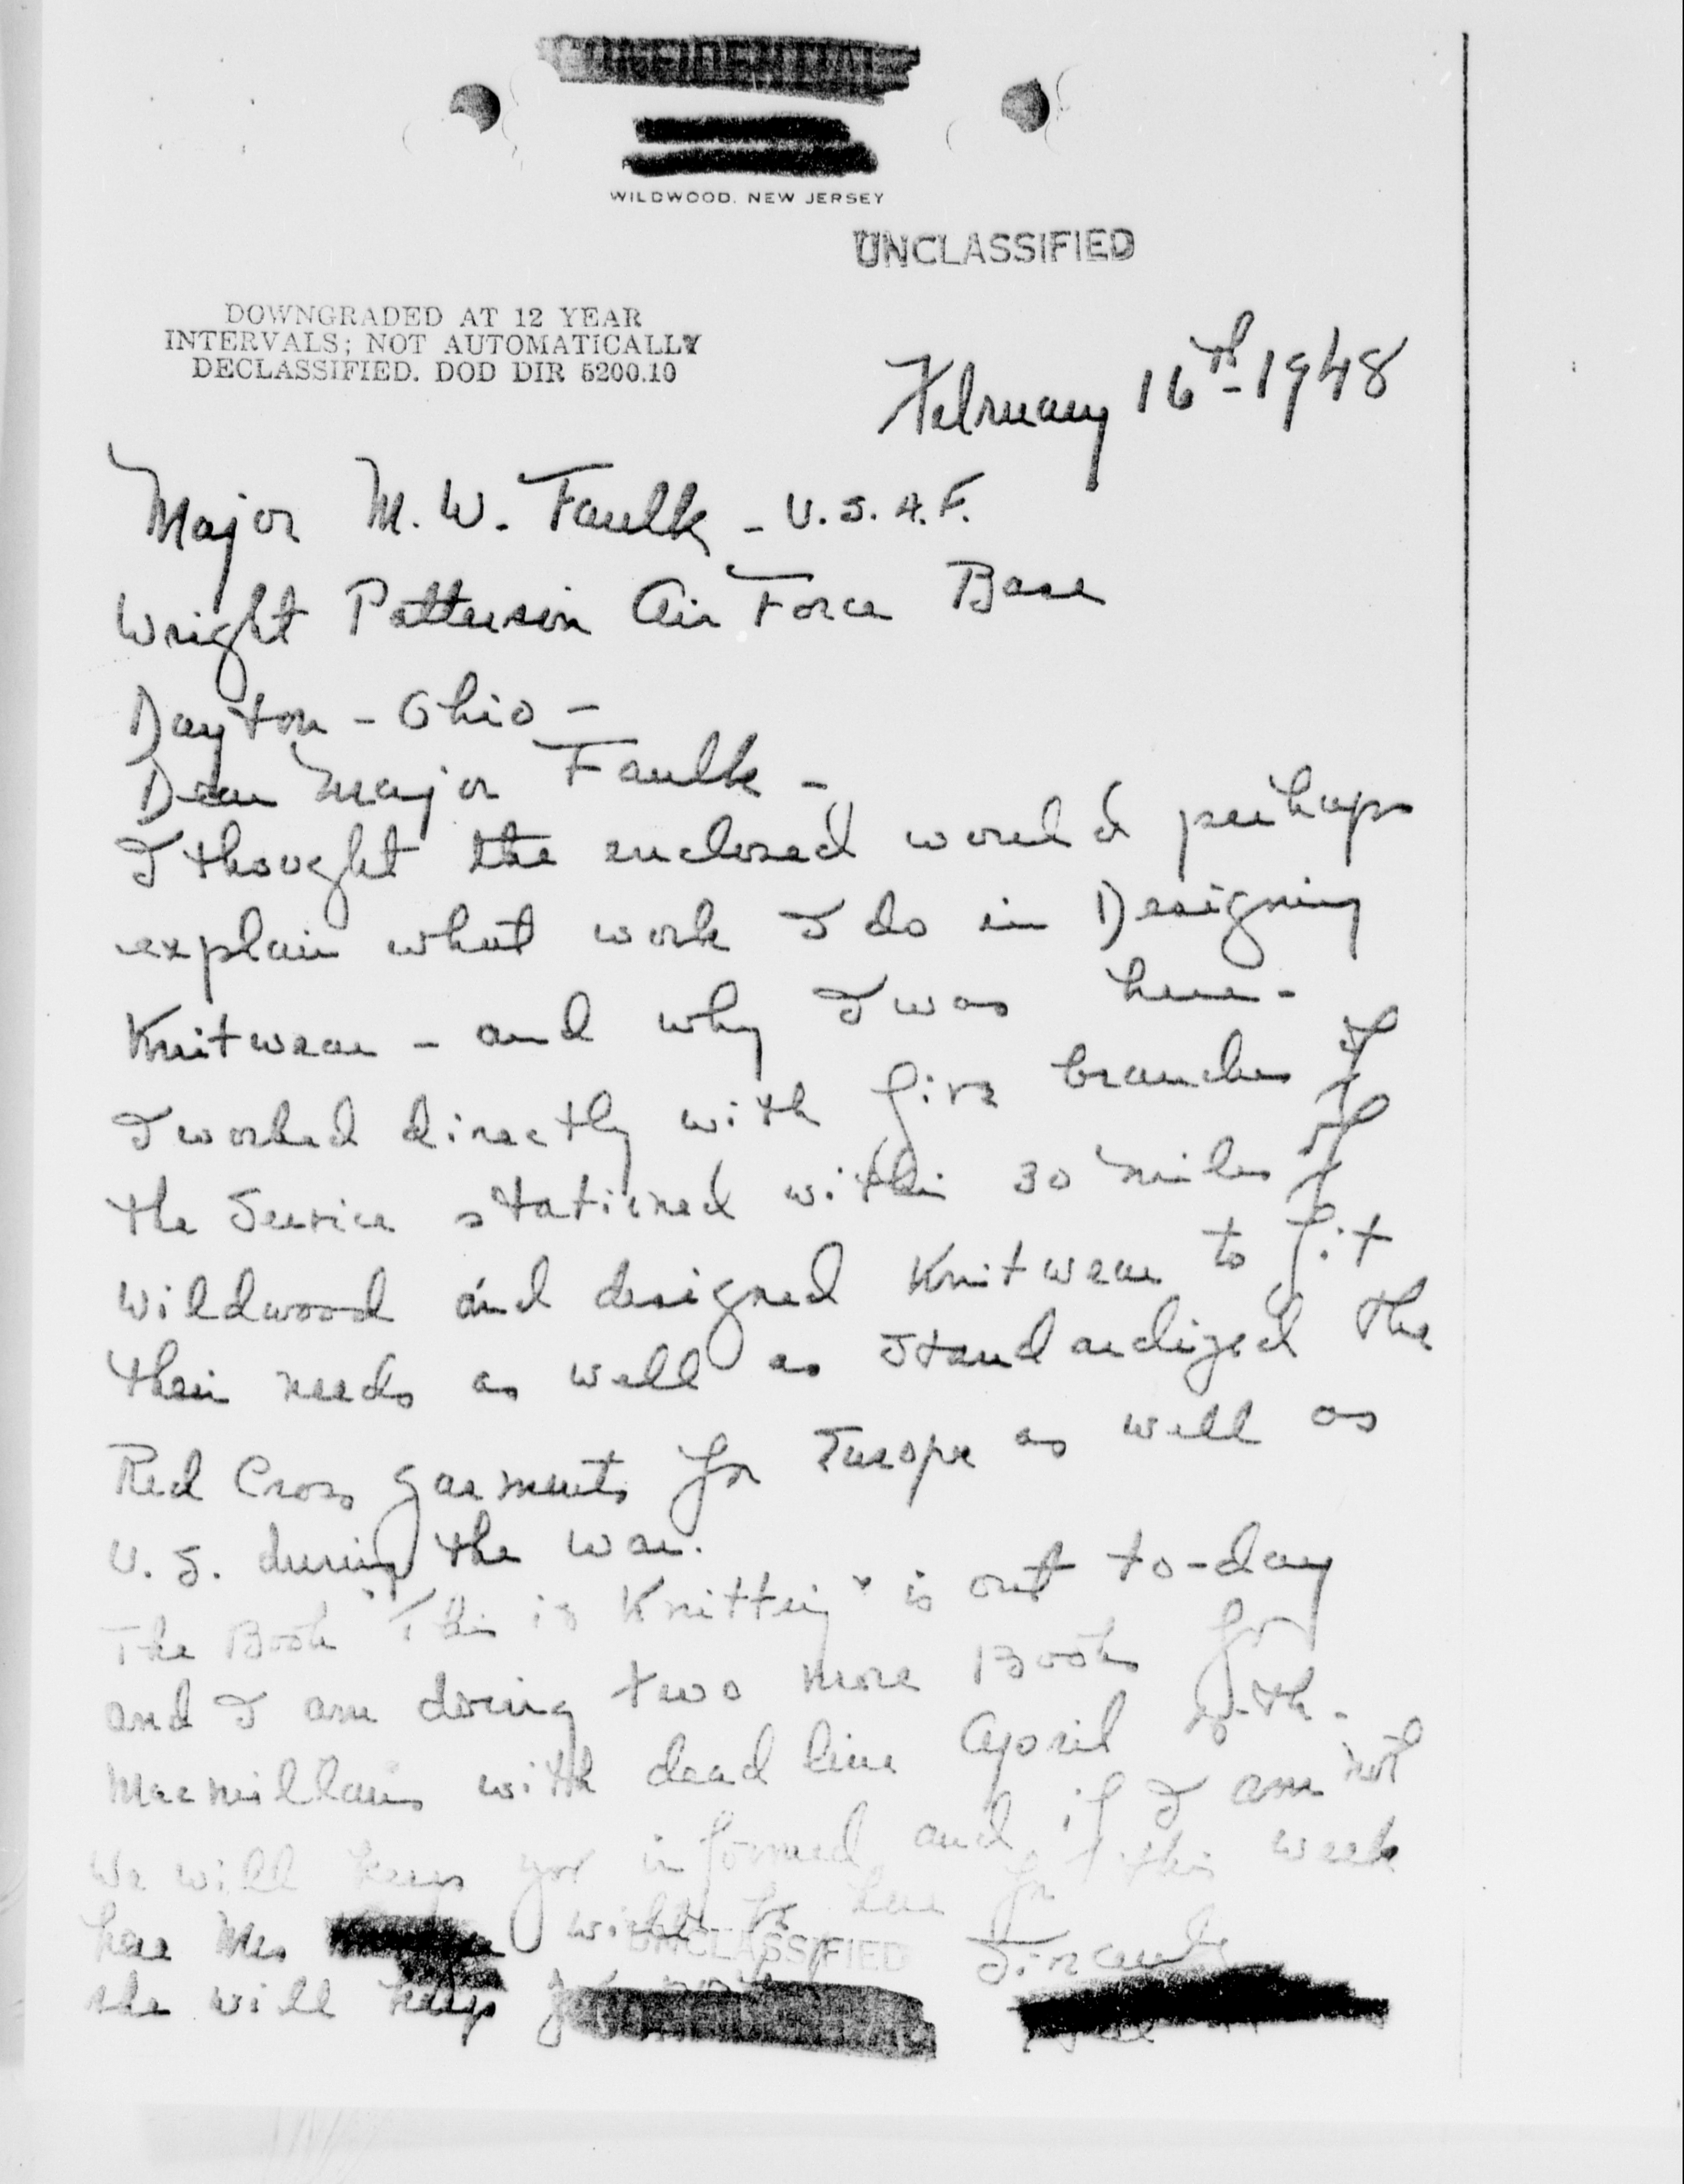 CONFIDENTIAL
WILDWOOD, NEW JERSEY
UNCLASSIFIED
DOWNGRADED AT 12 YEAR
INTERVALS; NOT AUTOMATICALLY
DECLASSIFIED. DOD DIR 5200.10
February 16th - 1948
Major M. W. Faulk - U.S.A.F.
Wright Patterson Air Force Base
Dayton - Ohio -
Dear Major Faulk -
I thought the enclosed would perhaps
explain what work I do in Designing
Knitwear - and why I was here -
I worked directly with five branches of
the Service stationed within 30 miles of
Wildwood and designed Knitwear to fit
their needs as well as standardized the
Red Cross garments for Europe as well as
U.S. during the war.
The Book "This is Knitting" is out to-day
and I am doing two more Books for
Macmillans with dead line April th.
We will keep you informed, and if I am not
here Mrs will be here for this week
she will keep you
Sincerely
UNCLASSIFIED
CONFIDENTIAL